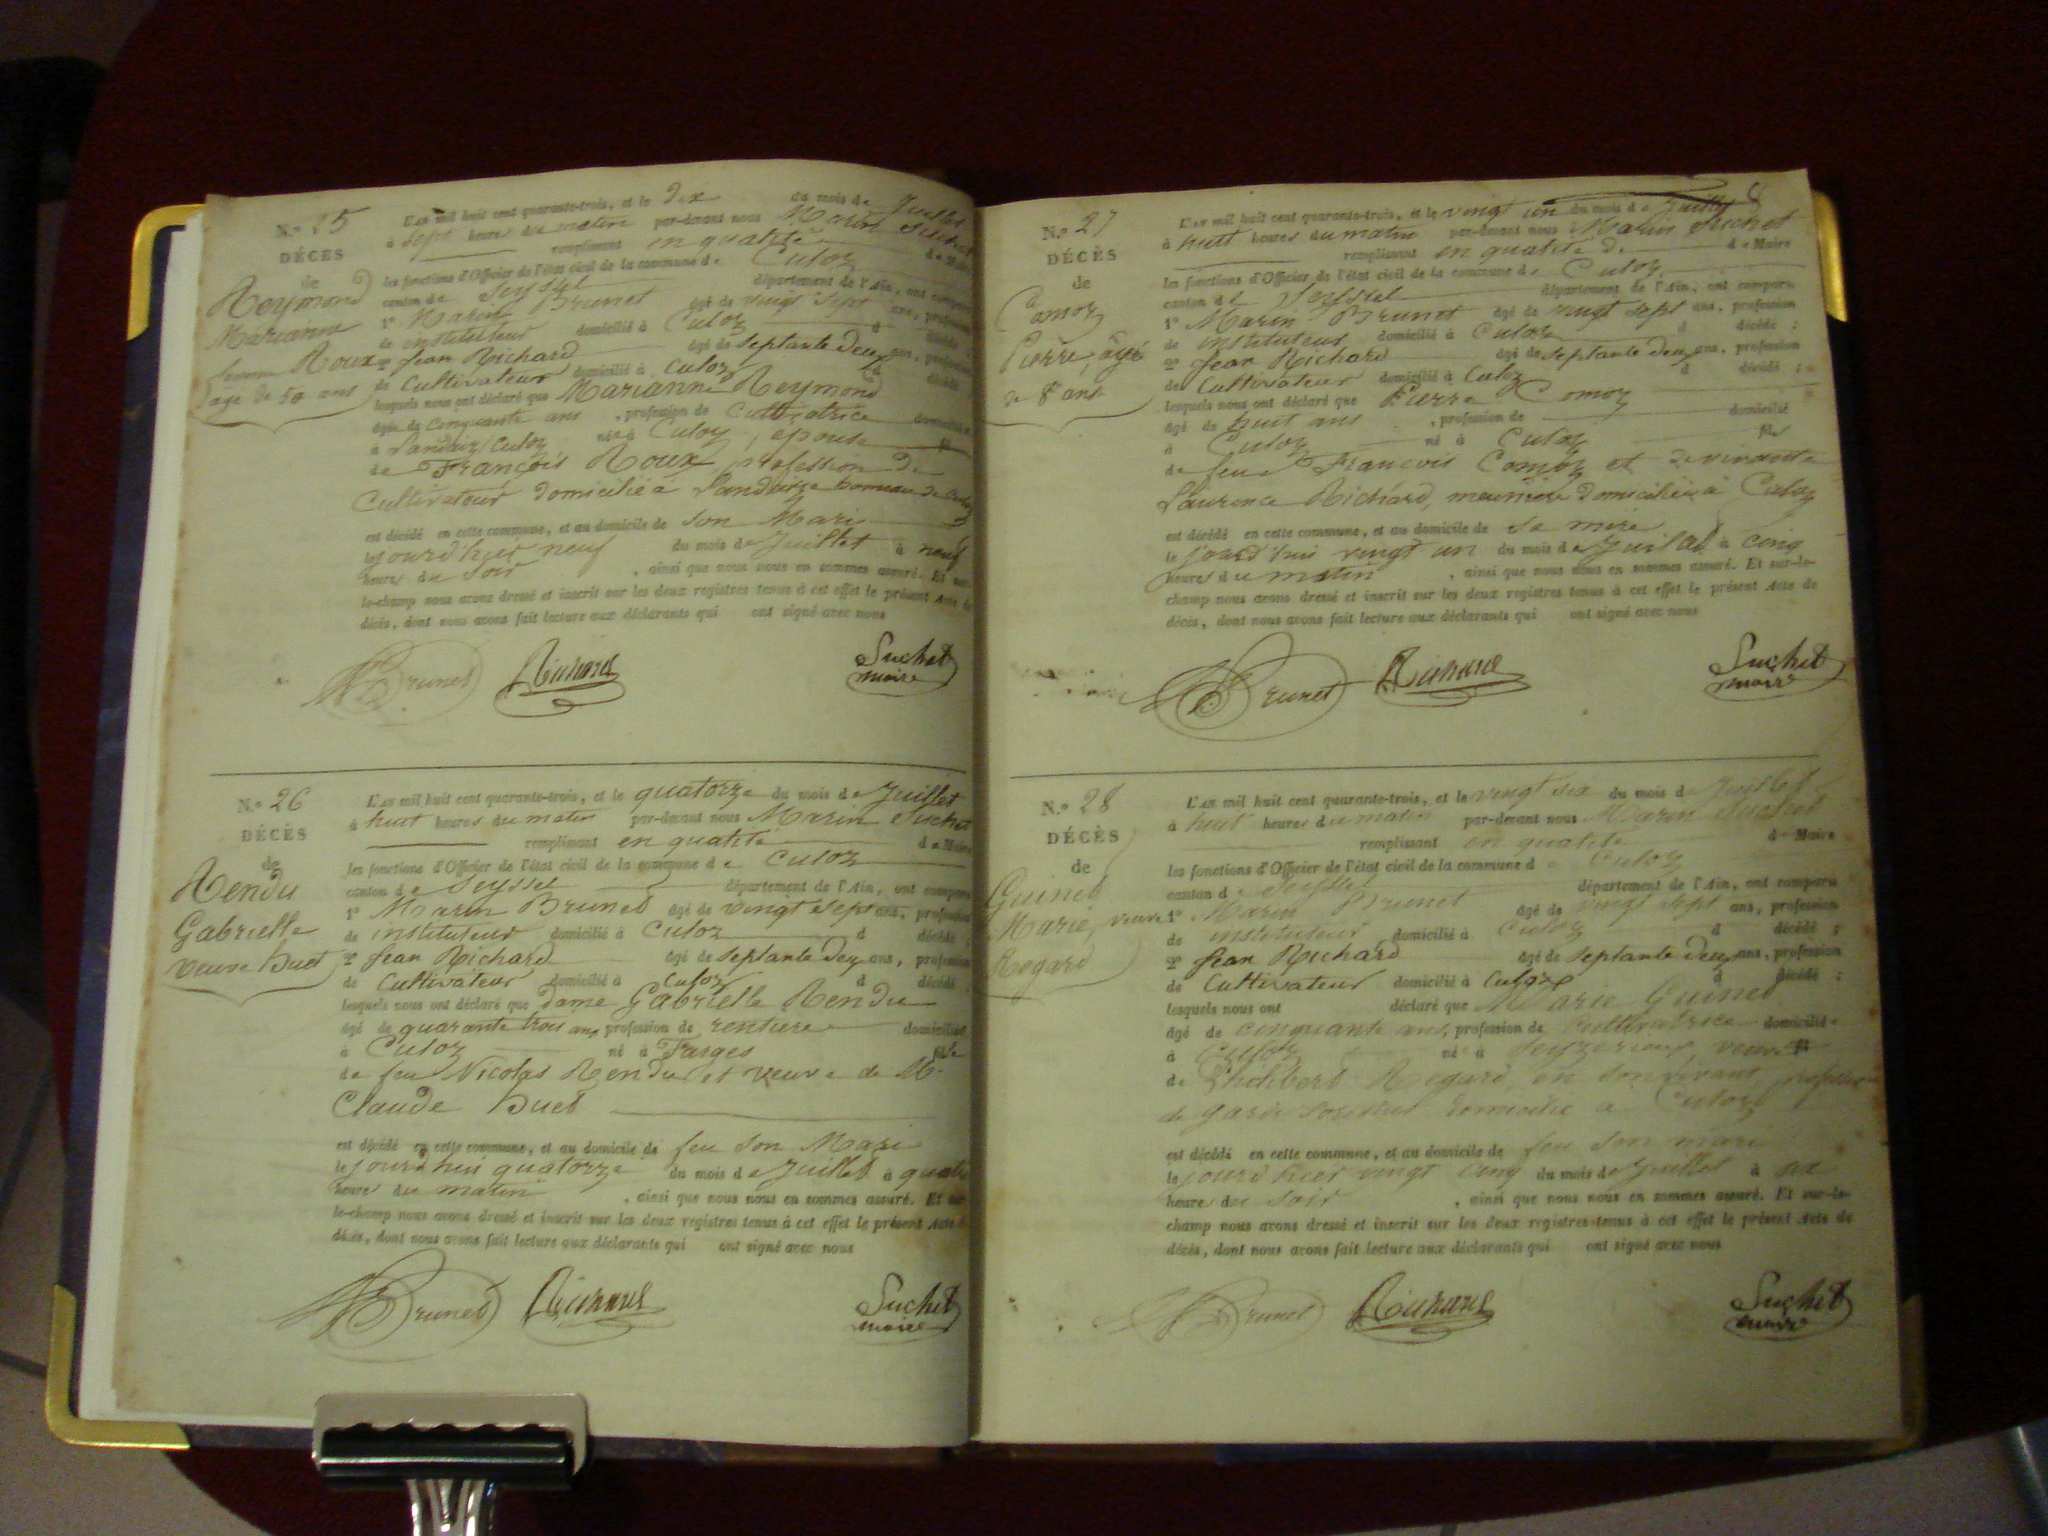 N.o 25
DÉCES
de
Reymond
Marianne
femme Roux
age de 50 ans
L'an mil huit cent quarante-trois, et le dix du mois de Juillet
à sept heures du matin par-devant nous Marin Suchet
remplissant en qualité de Maire
les fonctions d'Officier de l'état civil de la commune de Culoz
canton de Seyssel département de l'Ain, ont comparu
1o Marin Brunet âgé de vingt sept ans, profession
de instituteur domicilié à Culoz d décédé ;
2o Jean Richard âgé de septante deux ans, profession
de Cultivateur domicilié à Culoz d décédé
lesquels nous ont déclaré que Marianne Reymond
âgée de cinquante ans , profession de cultivatrice domiciliée
à Landaiz/Culoz née à Culoz, épouse
de François Roux, profession de
Cultivateur domicilié à Landaize hameau de Culoz
est décédé en cette commune, et au domicile de son Mari
le jourd'hier neuf du mois de Juillet à neuf
heures du soir , ainsi que nous nous en sommes assuré. Et sur-
le-champ nous avons dressé et inscrit sur les deux registres tenus à cet effet le présent Acte de
décès, dont nous avons fait lecture aux déclarants qui ont signé avec nous
M Brunet Richard Suchet
maire
N.o 26
DÉCÈS
de
Rendu
Gabrielle
veuve Huet
L'an mil huit cent quarante-trois, et le quatorze du mois de Juillet
à huit heures du matin par-devant nous Marin Suchet
remplissant en qualité de Maire
les fonctions d'Officier de l'état civil de la commune de Culoz
canton de Seyssel département de l'Ain, ont comparu
1o Marin Brunet âgé de vingt sept ans, profession
de instituteur domicilié à Culoz d décédé ;
2o Jean Richard âgé de septante deux ans, profession
de Cultivateur domicilié à Culoz d décédé ;
lesquels nous ont déclaré que dame Gabrielle Rendu
âgé de quarante trois ans, profession de rentiere domiciliée
à Culoz né à Farges fille
de feu Nicolas Rendu et veuve de Mr
Claude Huet
est décédé en cette commune, et au domicile de feu son Mari
le jourd'hui quatorze du mois de Juillet à quatre
heures du matin , ainsi que nous nous en sommes assuré. Et sur-
le-champ nous avons dressé et inscrit sur les deux registres tenus à cet effet le présent Acte de
décès, dont nous avons fait lecture aux déclarants qui ont signé avec nous
M Brunet Richard Suchet
maire
8
N.o 27
DÉCÈS
de
Comoz
Pierre, âgé
de 8 ans
L'an mil huit cent quarante-trois, et le vingt un du mois de Juillet
à huit heures du matin par-devant nous Marin Suchet
remplissant en qualité de de Maire
les fonctions d'Officier de l'état civil de la commune de Culoz
canton de Seyssel département de l'Ain, ont comparu
1o Marin Brunet âgé de vingt sept ans, profession
de instituteur domicilié à Culoz d décédé ;
2o Jean Richard âgé de septante deux ans, profession
de Cultivateur domicilié à Culoz d décédé ;
lesquels nous ont déclaré que Pierre Comoz
âgé de huit ans , profession de domicilié
à Culoz né à Culoz fils
de feu François Comoz et de vivante
Laurence Richard, meunière domiciliée à Culoz
est décédé en cette commune, et au domicile de sa mère
le jourd'hui vingt un du mois de Juillet à cinq
heures du matin , ainsi que nous nous en sommes assuré. Et sur-le-
champ nous avons dressé et inscrit sur les deux registres tenus à cet effet le présent Acte de
décès, dont nous avons fait lecture aux déclarants qui ont signé avec nous
M Brunet Richard Suchet
maire
N.o 28
DÉCÈS
de
Guinet
Marie, veuve
Regard
L'an mil huit cent quarante-trois, et le vingt six du mois de Juillet
à huit heures du matin par-devant nous Marin Suchet
remplissant en qualité de Maire
les fonctions d'Officier de l'état civil de la commune d e Culoz
canton de Seyssel département de l'Ain, ont comparu
1o Marin Brunet âgé de vingt sept ans, profession
de instituteur domicilié à Culoz d décédé ;
2o Jean Richard âgé de septante deux ans, profession
de Cultivateur domicilié à Culoz d décédé ;
lesquels nous ont déclaré que Marie Guinet
âgé de cinquante ans, profession de Cultivatrice domiciliée
à Culoz née à veuve
de Philibert Regard, en son vivant
de garde forestier domicilié à Culoz
est décédé en cette commune, et au domicile de feu son mari
le jourd'hier vingt cinq du mois de Juillet à six
heures du soir , ainsi que nous nous en sommes assuré. Et sur-le-
champ nous avons dressé et inscrit sur les deux registres tenus à cet effet le présent Acte de
décès, dont nous avons fait lecture aux déclarants qui ont signé avec nous
M Brunet Richard Suchet
maire